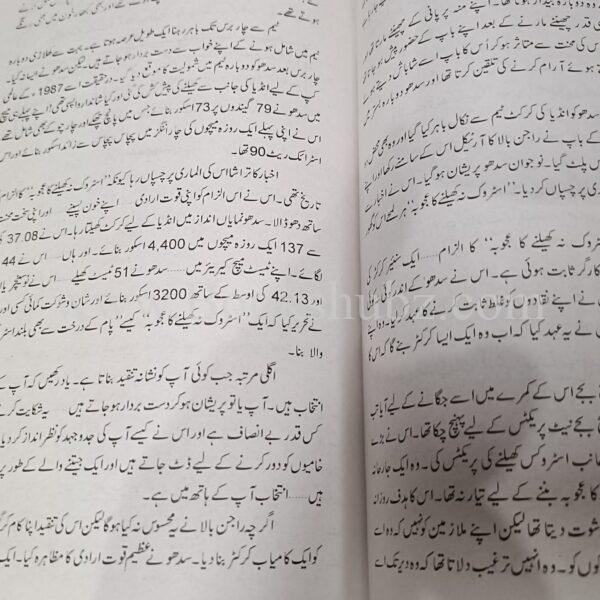 قدری چھینٹے مارنے کے بعد اپنے باپ کے حضور پیش
کی محنت سے متاثر ہو کر اُس کا باپ اسے شاباش دیتے
ہوئے آرام کرنے کی تلقین کرتا تھا اور سدھو دوبارہ بستر میں
سدھو کو انڈیا کی کرکٹ ٹیم سے نکال باہر کیا گیا اور وہ بھی محض
کے باپ نے راجن بالا کا آرٹیکل اس کے سامنے رکھا اور
پلٹ گیا۔ نوجوان سدھو پریشان ہو گیا۔ اس نے اخبار
پر چسپاں کر دیا۔ "اسٹروک نہ کھیلنے کا عجوبہ" ہر لمحے اس کو گھو
اسٹروک نہ کھیلنے کا عجوبہ" کا الزام ..... ایک سنیئر کرکٹر کی
کارگر ثابت ہوئی ہے۔ اس نے سدھو کے اندر کی
نے اپنے نقادوں کو غلط ثابت کرنے کا عہد کر لیا۔ وہ اپنے
نے یہ عہد کیا کہ اب وہ ایک ایسا کرکٹر بنے گا کہ اس کا
بجے اس کے کمرے میں اسے جگانے کے لیے آیا تب
بجے نیٹ پریکٹس کے لیے پہنچ چکا تھا۔ اس نے بڑے
جانب اسٹروکس کھیلنے کی پریکٹس کی۔ وہ ایک جارحانہ
کا عجوبہ بننے کے لیے تیار نہ تھا۔ اس کا ہدف روزانہ
دیتا تھا لیکن اپنے ملازمین کو نہیں کہ وہ اسے
کو۔ وہ انہیں ترغیب دلاتا تھا کہ وہ دیر تک اسے
ٹیم سے چار برس تک باہر رہنا ایک طویل عرصہ ہوتا ہے۔ بہت سے کھلاڑی دوبارہ
ٹیم میں شامل ہونے کے اپنے خواب سے دست بردار ہو جاتے ہیں۔ لیکن سدھو نے ایسا نہ کیا۔
چار برس بعد سدھو کو دوبارہ ٹیم میں شمولیت کا موقع دیا گیا۔ درحقیقت اسے 1987ء کے عالمی
کپ کے لیے انڈیا کی جانب سے کھیلنے کی پیش کش کی گئی اور کیا شاندار واپسی تھی! اپنے پہلے ہی میچ
میں سدھو نے 79 گیندوں پر 73 اسکور بنائے جس میں پانچ چھکے اور چار چوکے بھی شامل تھے۔
اس نے اپنی پہلے ایک روزہ میچوں کی چار اننگز میں پچاس پچاس سے زائد اسکور بنائے اور اس
اسٹرائک ریٹ 90 تھا۔
اخبار کا تراشا اس کی الماری پر چسپاں رہا کیونکہ "اسٹروک نہ کھیلنے کا عجوبہ" کا الزام
تاریخ تھی۔ اس نے اس الزام کو اپنی قوت ارادی ..... اپنے خون پسینے ..... اور اپنی سخت محنت
ساتھ دھو ڈالا۔ سدھو نمایاں انداز میں انڈیا کے لیے کرکٹ کھیلتا رہا۔ اس نے 37.08
سے 137 ایک روزہ میچوں میں 4,400 اسکور بنائے۔ اور ہاں ..... اس نے 44
لگائے۔ اپنے ٹیسٹ میچ کیریئر میں ..... سدھو نے 51 ٹیسٹ کھیلے ..... اس نے نو سنچریاں بنا
اور 42.13 کی اوسط کے ساتھ 3200 اسکور بنائے اور شان و شوکت کمائی کسی اور
نے تحریر کیا کہ ایک "اسٹروک نہ کھیلنے کا عجوبہ" کیسے "پام کے درخت سے بھی بلند اسٹر
والا بنا۔
اگلی مرتبہ جب کوئی آپ کو نشانہ تنقید بناتا ہے۔ یاد رکھیں کہ آپ کے
انتخاب ہیں۔ آپ یا تو پریشان ہو کر دست بردار ہو جاتے ہیں ..... یہ شکایت کرتے
کس قدر بے انصاف ہے اور اس نے کیسے آپ کی جدوجہد کو نظر انداز کر دیا
خامیوں کو دور کرنے کے لیے ڈٹ جاتے ہیں اور ایک جیتنے والے کے طور پر
ہیں ..... انتخاب آپ کے ہاتھ میں ہے۔
اگرچہ راجن بالا نے یہ محسوس نہ کیا ہو گا لیکن اس کی تنقید اپنا کام کر گ
کو ایک کامیاب کرکٹر بنا دیا۔ سدھو نے عظیم قوت ارادی کا مظاہرہ کیا۔ ایک